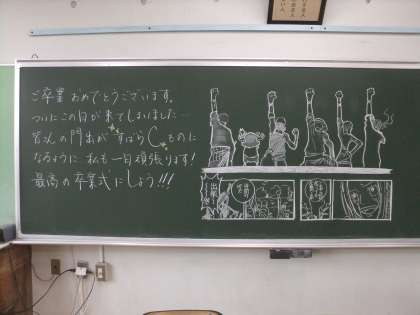 ご卒業おめでとうございます。
ついにこの日が来てしまいました…
皆さんの門出がすばらCものに
なるように私も一日頑張ります!
最高の卒業式にしよう!!!
出航